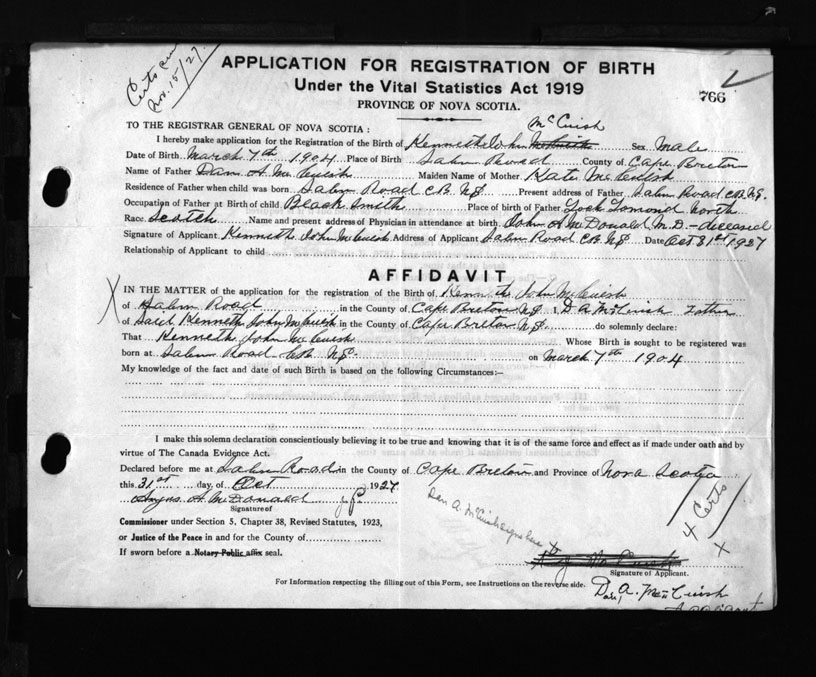 Certs
Nov. 15/27.
APPLICATION FOR REGISTRATION OF BIRTH
Under the Vital Statistics Act 1919
766
PROVINCE OF NOVA SCOTIA.
McCuish
TO THE REGISTRAR GENERAL OF NOVA SCOTIA :
I hereby make application for the Registration of the Birth of Kenneth John Sex Male
Date of Birth March 7th 1904 Place of Birth Salem Road County of Cape Breton
Name of Father Dan A. McCuish Maiden Name of Mother Kate McCuish
Residence of Father when child was born Salem Road CB NS Present address of Father Salem Road CB N.S.
Occupation of Father at Birth of child Black Smith Place of birth of Father Loch Lomond North
Race Scotch Name and present address of Physician in attendance at birth John A McDonald M.D. - deceased
Signature of Applicant Kenneth John McCuish Address of Applicant Salem Road CB NS Date Oct 31st 1927
Relationship of Applicant to child
AFFIDAVIT
X IN THE MATTER of the application for the registration of the Birth of Kenneth John McCuish
of Salem Road in the County of Cape Breton NS I, D A McCuish Father
of said Kenneth John McCuish in the County of Cape Breton N.S. do solemnly declare:
That Kenneth John McCuish Whose Birth is sought to be registered was
born at Salem Road CB NS. on March 7th 1904
My knowledge of the fact and date of such Birth is based on the following Circumstances:—
I make this solemn declaration conscientiously believing it to be true and knowing that it is of the same force and effect as if made under oath and by
virtue of The Canada Evidence Act.
Declared before me at Salem Road in the County of Cape Breton and Province of Nova Scotia
this 31st day, of Oct 1927
Angus A McDonald J.P.
Signature of
Dan A. McCuish sign here X
4 Certs
X
Commissioner under Section 5, Chapter 38, Revised Statutes, 1923,
or Justice of the Peace in and for the County of
If sworn before a Notary Public affix seal.
Signature of Applicant.
For Information respecting the filling out of this Form, see Instructions on the reverse side.
Dan, A. McCuish
Applicant